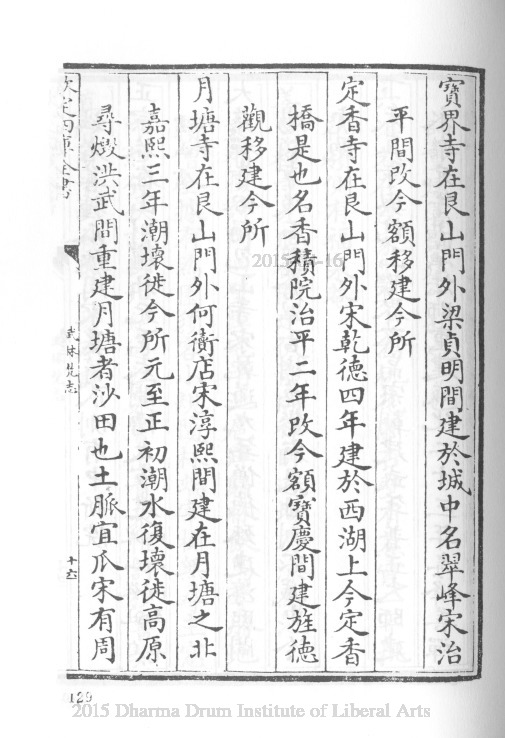 寶界寺在艮山門外梁貞明間建於城中名翠峰宋治
平間改今額移建今所
定香寺在艮山門外宋乾德四年建於西湖上今定香
橋是也名香積院治平二年改今額寶慶間建旌德
觀移建今所
月塘寺在艮山門外何衙店宋淳熙間建在月塘之北
嘉熙三年潮壞徙今所元至正初潮水復壞徙高原
尋燬洪武間重建月塘者沙田也土脈宜瓜宋有周
欽定四庫全書
武林梵志
129
2015 Dharma Drum Institute of Liberal Arts